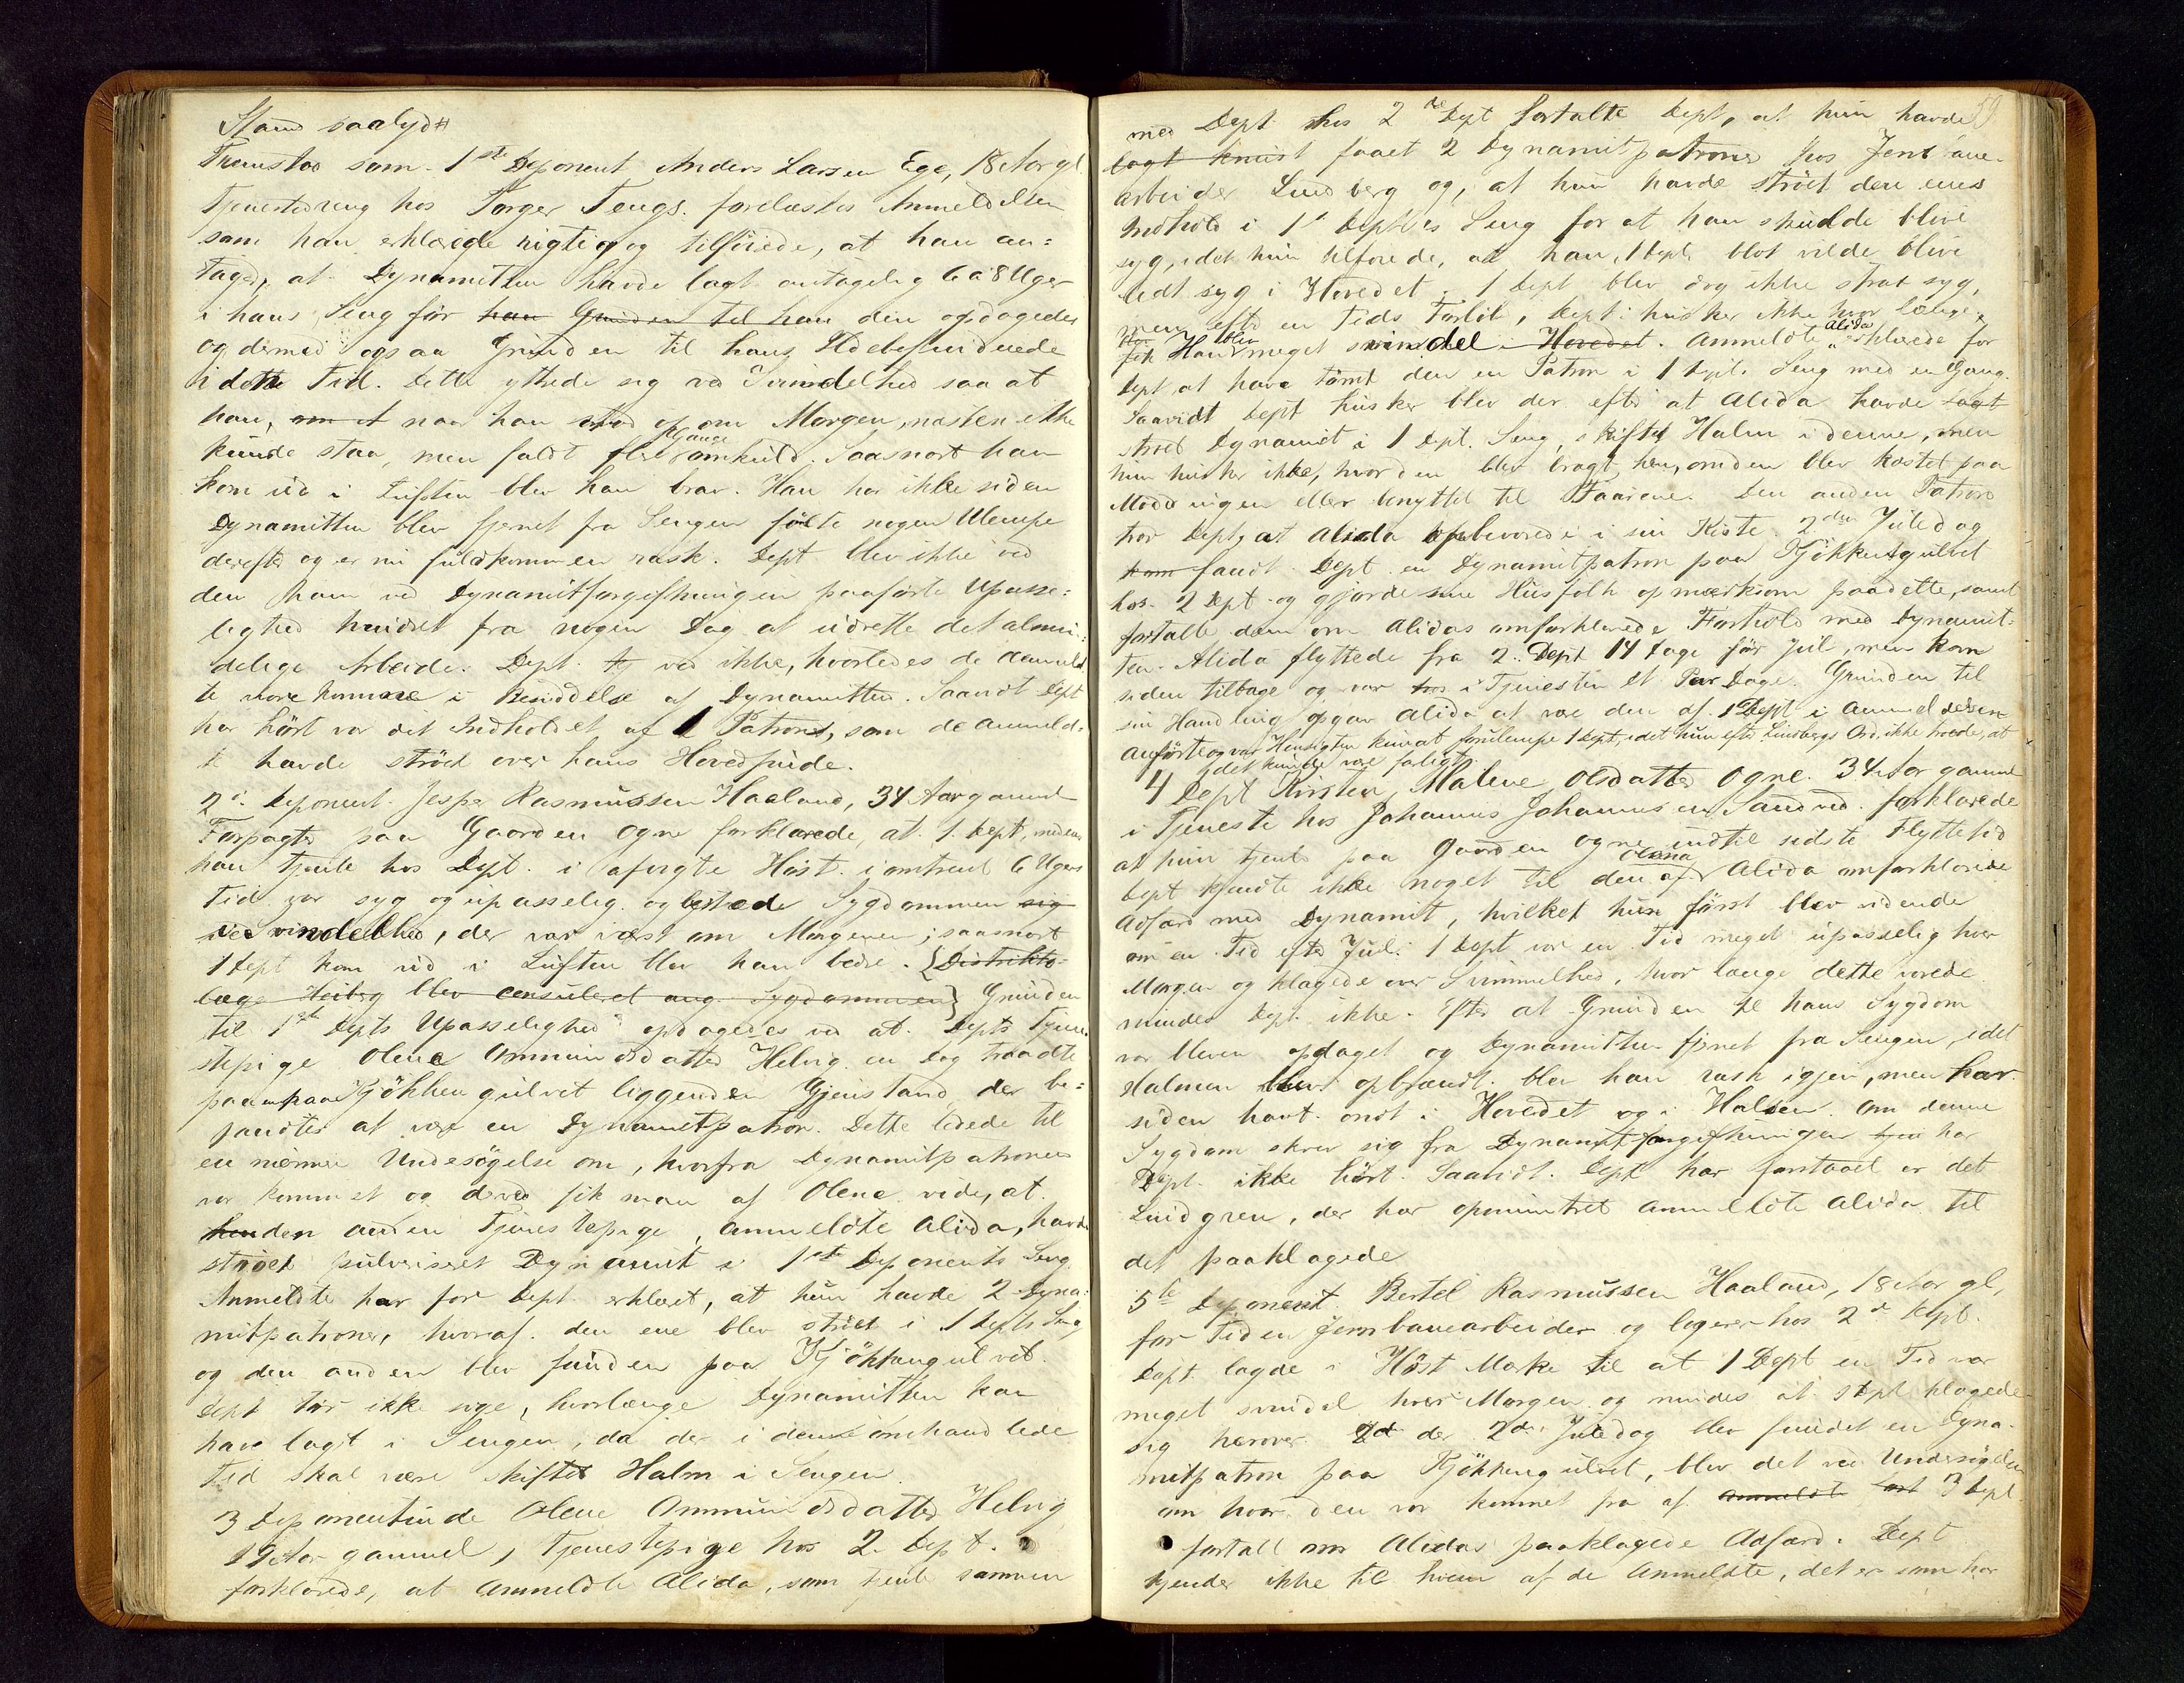 Stand saalyd#
Fremstod som 1ste Deponent Anders Larsen Ege, 18 Aar gl
Tjenestedreng hos Torger Tengs. forelæstes Anmeldelsen
som han erklærede rigtig og tilføiede, at han an=
tager, at Dynamitten havde lagt antagelig 6 a 8 Uger
i hans Seng før han Grunden til han den opdagedes
og dermed ogsaa Grunden til hans Ildebefindende
i dette Tid. Dette yttrede sig ved Svindelhed saa at
han, om at naar han stod op om Morgen, næsten ikke
kunde staa, men faldt flere Gange omkuld. Saasnart han
kom ud i Luften blev han brav. Han har ikke siden
Dynamitten blev fjernet fra Sengen følte nogen Ulempe
derefter og er nu fuldkommen rask. Dept blev ikke ved
den ham ved Dynamitforgiftningen paaførte Upasse=
lighed hindret fra nogen Dag at udrette det almin=
delige Arbeide. Dept. ved ikke, hvorledes de Anmeld
te vare komne i Besiddelse af Dynamitten. Saavidt Dept
har hørt var det Indholdet af 1 Patron, som de Anmeld=
te havde strøet over hans Hovedpude.
2d. Deponent. Jesper Rasmussen Haaland, 34 Aar gammel
Forpagter paa Gaarden Ogne forklarede, at 1. Dept, medens
han tjente hos Dept. i afvigte Høst i omtrent 6 Ugers
Tid var syg og upasselig og bestod Sygdommen sig
ved Svindelhed, der var værst om Morgenen; saasnart
1 Dept kom ud i Luften blev han bedre. {Distrikts-
læge Heiberg blev consuleret ang. Sygdommen} Grunden
til 1ste Depts Upasselighed opdagedes ved at Depts Tjene
stepige Olene Ommundsdatter Helvig en Dag traadte
paa en paa Kjøkkengulvet liggende Gjenstand, der be=
fandtes at være en Dynamitpatron. Dette ledede til
en nærmere Undersøgelse om, hvorfra Dynamitpatronen
var kommet og derved fik man af Olene vide, at
hen den anden Tjenestepige, Anmeldte Alida, havde
strøet pulveriseret Dynamit i 1ste Deponents Seng.
Anmeldte har for Dept. erklæret, at hun havde 2 Dyna=
mitpatroner, hvoraf den ene blev strøet i 1 Depts Seng
og den anden blev funden paa Kjøkkengulvet.
Dept tør ikke sige, hvorlænge Dynamitten kan
have lagt i Sengen, da der i denne omhandlede
Tid skal være skiftet Halm i Sengen.
3 Deponentinde Olene Ommundsdatter Helvig
19 Aar gammel, Tjenestepige hos 2. Dept.
forklarede, at Anmeldte Alida, som tjente sammen
59
med Dept. hos 2de Dept fortalte Dept, at hun havde
faaet 2 Dynamitpatroner hos Jernbane-
arbeider Lindberg og, at hun havde strøet den enes
Indhold i 1' Deptes Seng for at han skulde blive
syg, idet hun tilføiede, at han, 1 Dept blot vilde blive
lidt syg i Hovedet. 1 Dept blev dog ikke strax syg,
men efter en Tids Forløb, Dept. husker ikke hvor længe,
fik Han blev meget svindel i Hovedet. Anmeldte Alida erklærede for
Dept at have tømt den en Patron i 1 Depts Seng med en Gang.
Saavidt Dept husker blev der efter at Alida havde lagt
strøet Dynamit i 1 Dept. Seng, skiftet Halm i denne, men
hun husker ikke, hvor den blev bragt hen, om den blev kastet paa
Møddingen eller benyttet til Faarene. Den anden Patron
tror Dept, at Alida opbevarede i sin Kiste. 2den Juledag
kom fandt Dept en Dynamitpatron paa Kjøkkengulvet
hos 2 Dept og gjorde sine Husfolk opmærksom paa dette, samt
fortalte dem om Alidas omforklarede Forhold med Dynamit-
ten. Alida flyttede fra 2. Dept 14 Dage før Jul, men kom
siden tilbage og var hos i Tjenesten et Par Dage. Grunden til
sin Handling opgav Alida at være den af 1 Dept i Anmeldelsen
anførte og var Hensigten kun at forulempe 1 Dept, idet hun efter Lindbergs Ord, ikke troede, at
det kunde være farligt.
4 Dept Kirsten Malene Olsdatter Ogne. 34 Aar gammel
i Tjeneste hos Johannes Johannesen Sandved. forklarede
at hun tjente paa Gaarden Ogne indtil sidste Flyttetid
Dept kjendte ikke noget til den af Olena Alida omforklarede
Adfærd med Dynamit, hvilket hun først blev vidende
om en Tid efter Jul. 1 Dept var en Tid meget upasselig hver
Morgen og klagede over Svimmelhed, hvor længe dette varede
mindes Dept. ikke. Efter at Grunden til hans Sygdom
var bleven opdaget og Dynamitten fjernet fra Sengen, idet
Halmen blev opbrændt. blev han rask igjen, men har
siden havt ondt i Hovedet og i Halsen. Om denne
Sygdom skrev sig fra Dynamitforgiftningen har
Dept. ikke hørt. Saavidt Dept har forstaaet er det
Lindgren, der har opmuntret Anmeldte Alida til
det paaklagede
5te Deponent. Bertel Rasmussen Haaland, 18 Aar gl,
for Tiden Jernbanearbeider og logerer hos 2d Dept.
Dept. lagde i Høst Mærke til at 1 Dept en Tid var
meget svindel hver Morgen og mindes at 1 Dept klagede
sig herover. Da der 2den Juledag blev fundet en Dyna-
mitpatron paa Kjøkkengulvet, blev det ved Undersøgelsen
om hvor den var kommet fra af Anmeldte 3 Dept
fortalt om Alidas paaklagede Adfærd. Dept
kjender ikke til hvem af de Anmeldte, det er som har